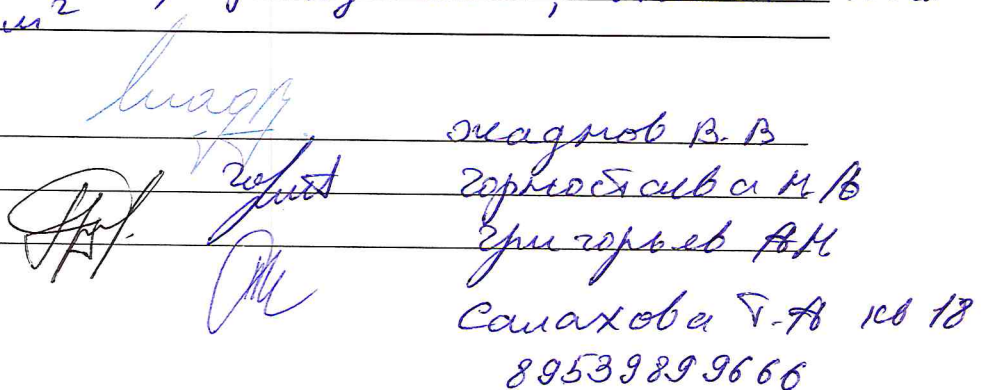 м²
Жаднов В. В
Горностаева Н В
Григорьев АН
Салахова Т. А кв 18
89539899666